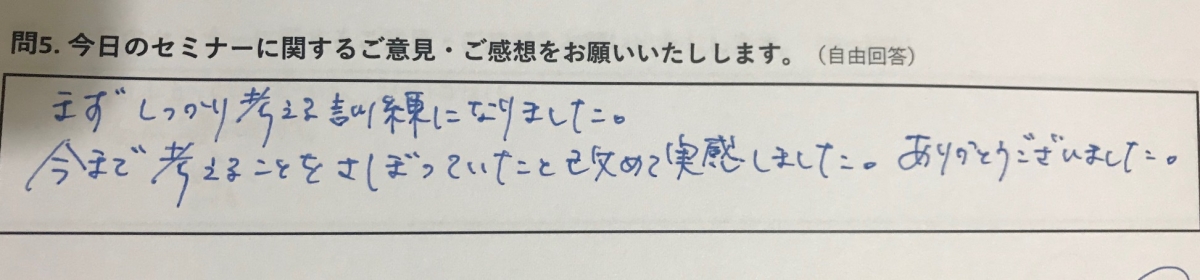 問5. 今日のセミナーに関するご意見・ご感想をお願いいたしします。（自由回答）
まずしっかり考える訓練になりました。
今まで考えることをさぼっていたこと改めて実感しました。ありがとうございました。